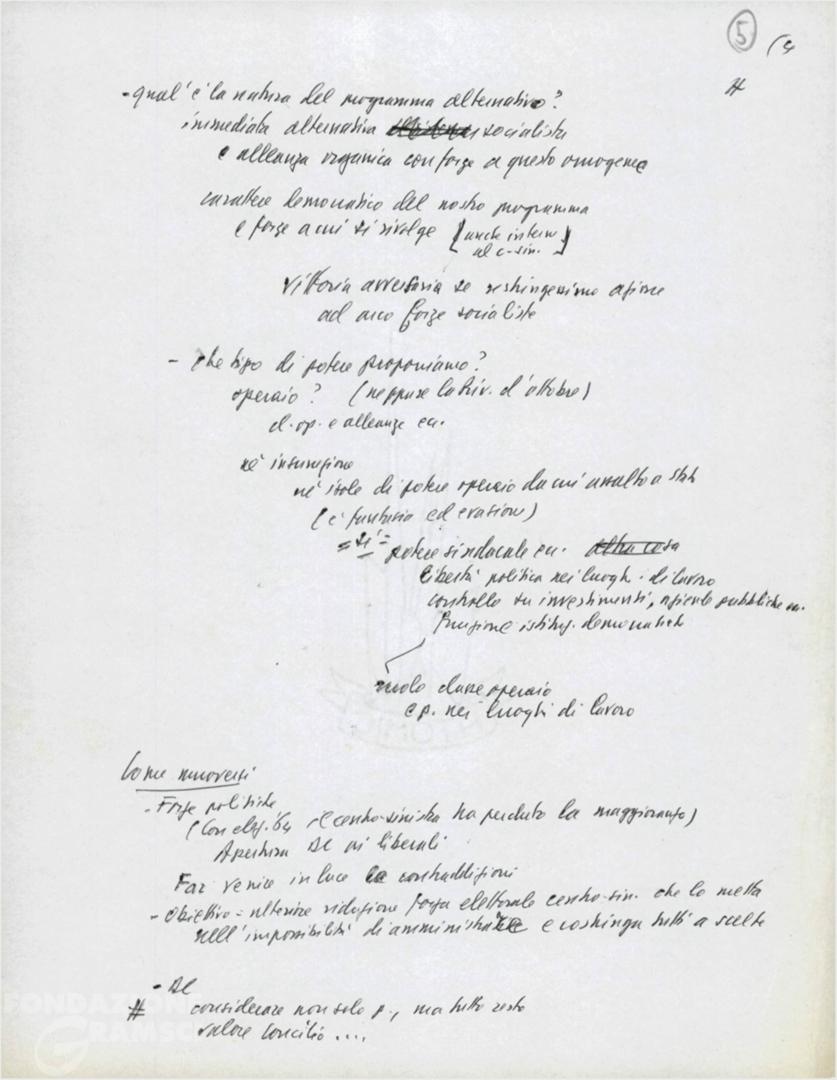 5 (4
#
- qual'è la natura del programma alternativo?
immediata alternativa socialista
e alleanza organica con forze a questo omogenee
carattere democratico del nostro programma
e forze a cui si rivolge [anche interne
al c-sin.]
vittoria avversaria se restringessimo azione
ad arco forze socialiste
- che tipo di potere proponiamo?
operaio? (neppure la Riv. d'ottobre)
d. op. e alleanze ecc.
né insurrezione
né isole di potere operaio da cui assalto a Stato
(è fantasia ed evasione)
= sì = potere sindacale ecc. altra cosa
libertà politica nei luoghi di lavoro
controllo su investimenti, aziende pubbliche ecc.
funzione istituz. democratiche
ruolo classe operaia
e p. nei luoghi di lavoro
Come muoversi
- Forze politiche
(Con elez. '64 il centro-sinistra ha perduto la maggioranza)
Apertura DC ai liberali
Far venire in luce le contraddizioni
- Obiettivo = ulteriore riduzione forza elettorale centro-sin. che lo metta
nell'impossibilità di amministrare e costringa tutti a scelte
- DC
# considerare non solo p., ma tutto resto
valore Concilio ....
FONDAZIONE
GRAMSCI